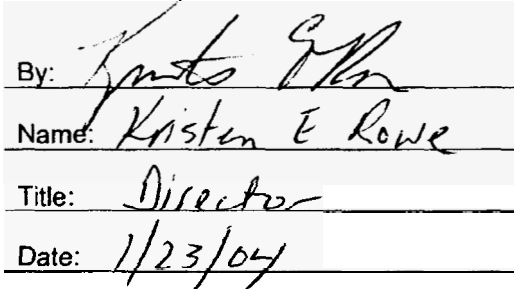 By:
Name: Kristen E Rowe
Title: Director
Date: 1/23/04